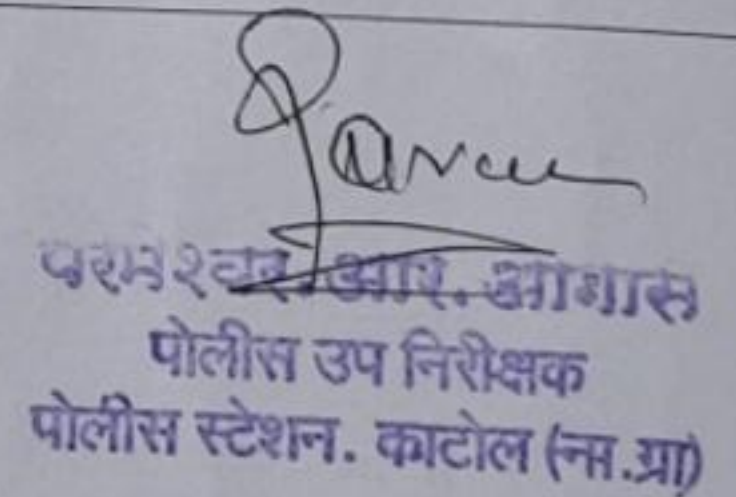 परमेश्वर. आर. आगास
पोलीस उप निरीक्षक
पोलीस स्टेशन. काटोल (ना.ग्रा)